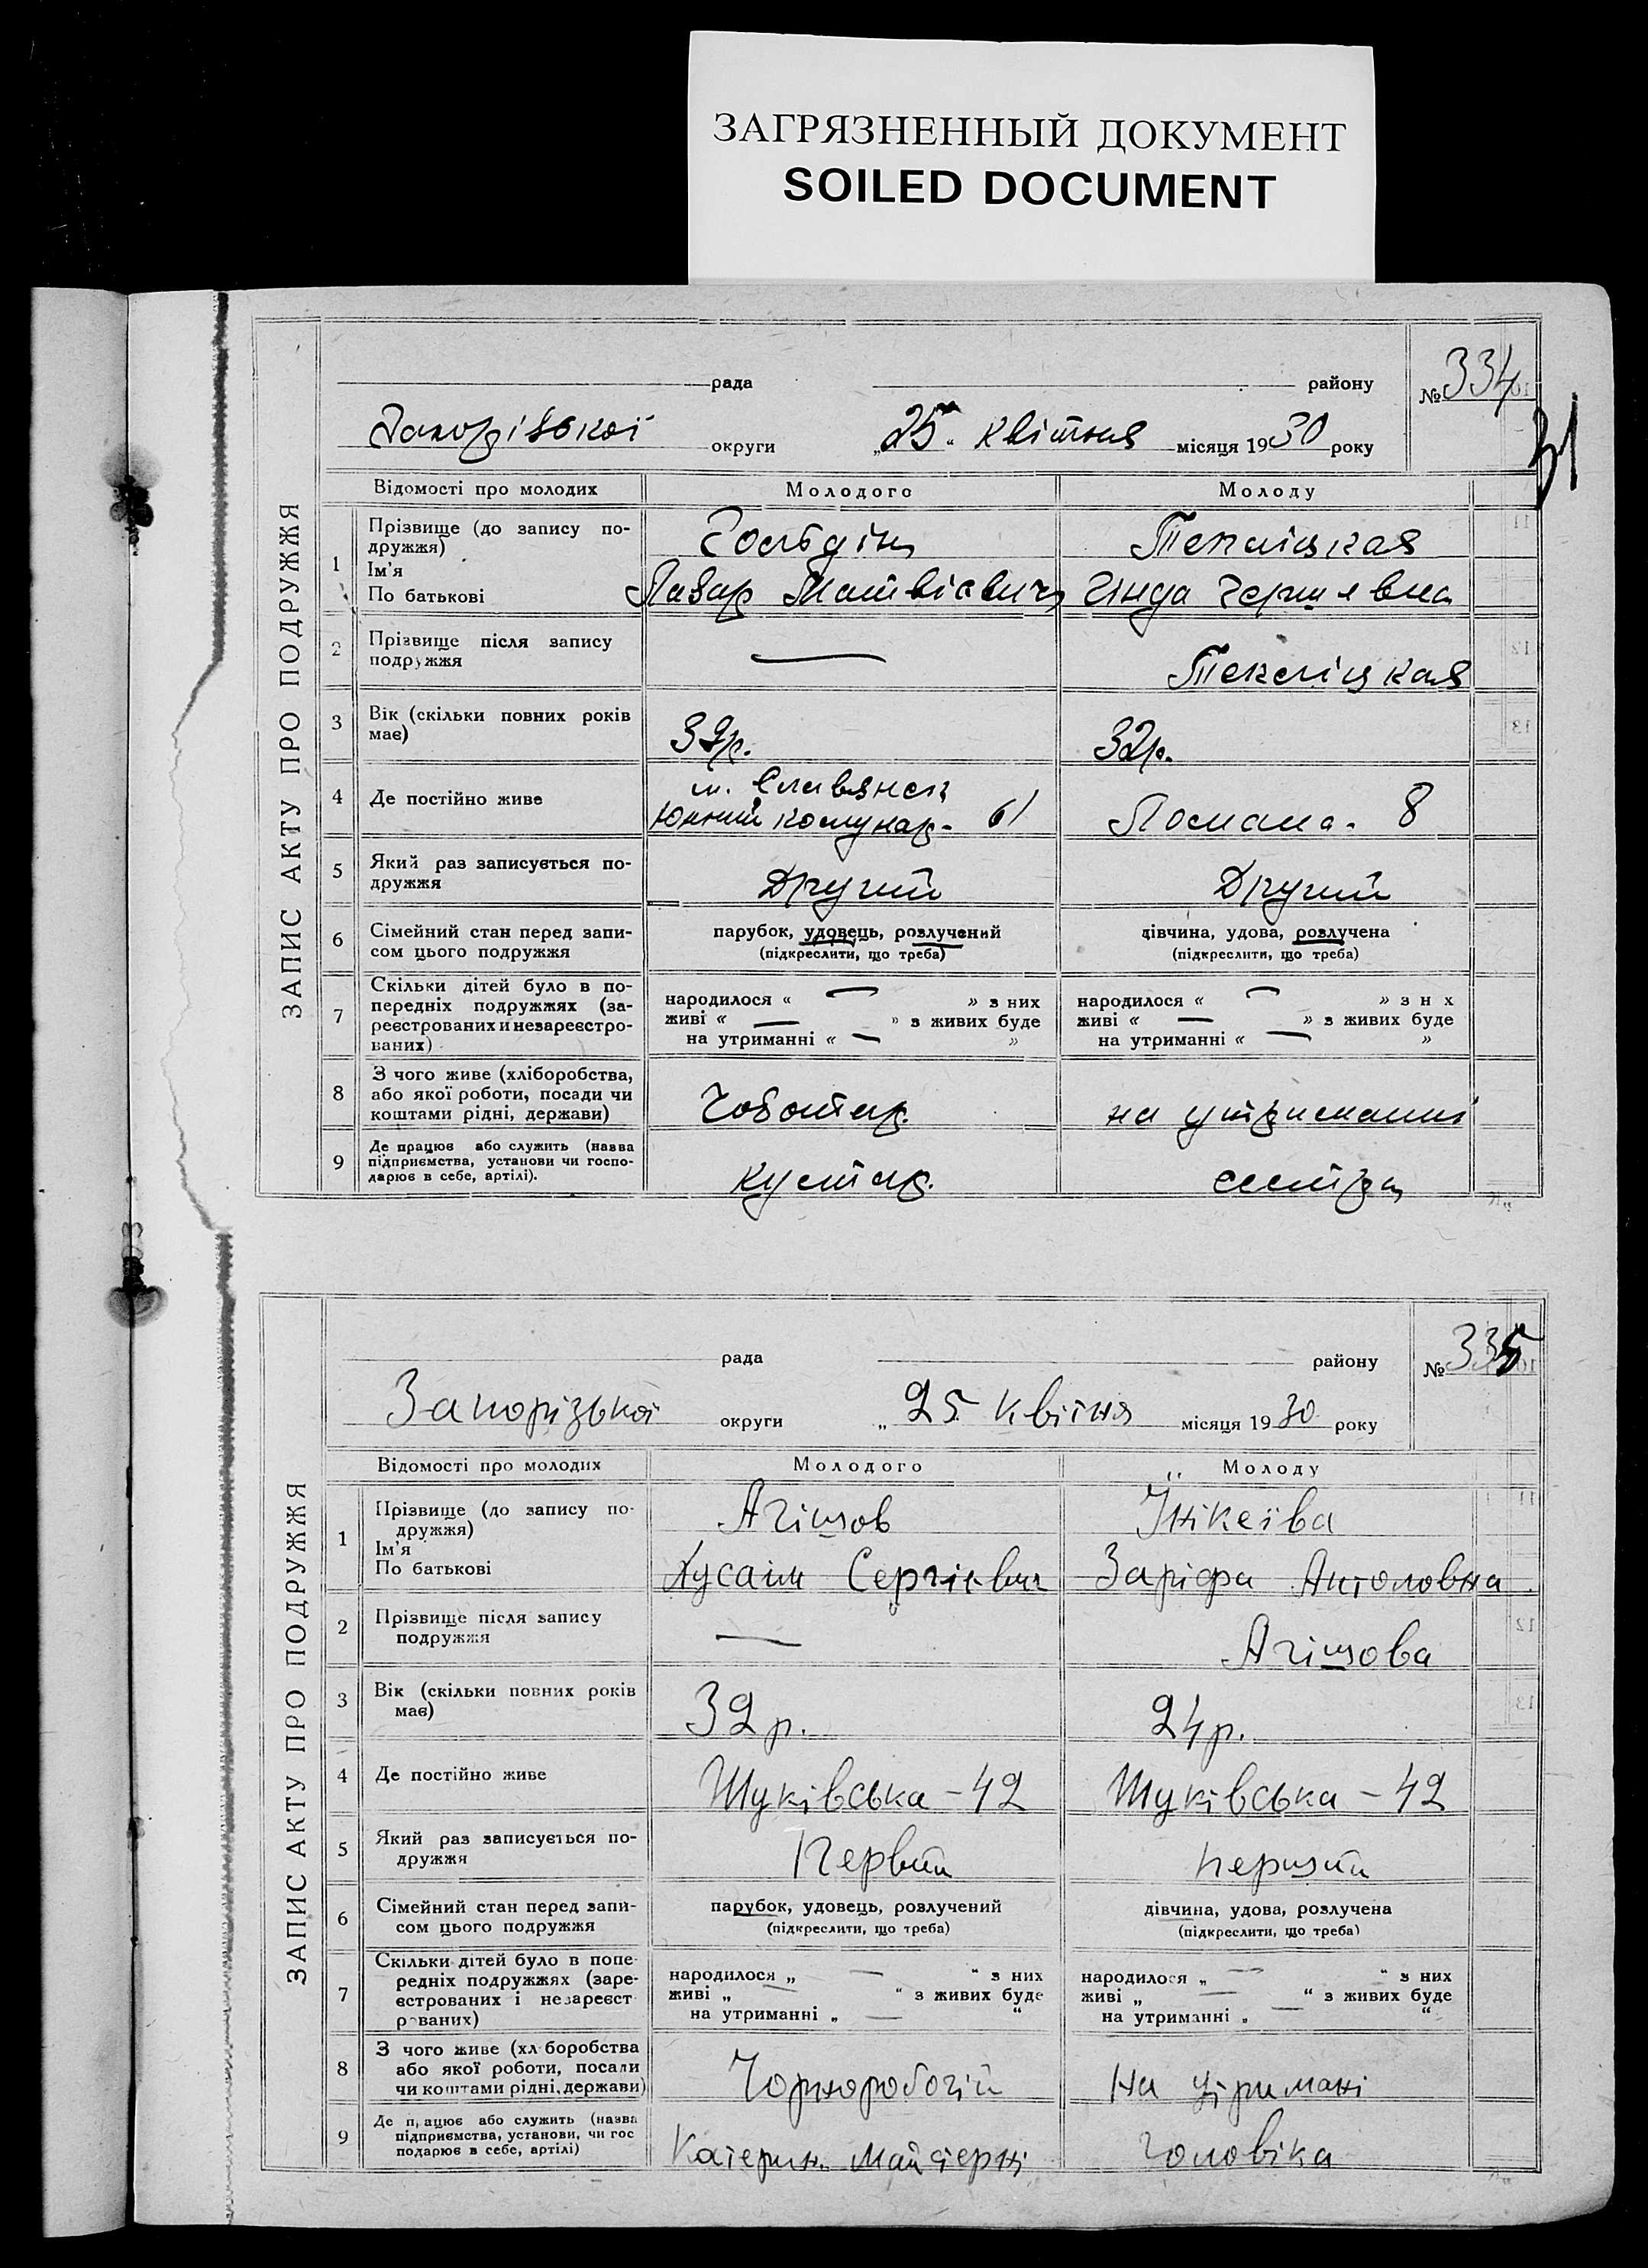 ЗАГРЯЗНЕННЫЙ ДОКУМЕНТ
SOILED DOCUMENT
ЗАПИС АКТУ ПРО ПОДРУЖЖЯ
рада района району № 334
31
Запорізської округи „25“ квітня місяця 1930 року
Відомості про молодих Молодого Молоду
1 Прізвище (до запису по-
дружжя) Гольдін Теплицкая
Ім'я
По батькові Лазар Матвієвич Гінда Гершевна
2 Прізвище після запису
подружжя — Теплицкая
3 Вік (скільки повних років
має) 32р. 32р.
4 Де постійно живе м. Славянск
Юнний комунар- 61 8
5 Який раз записується по-
дружжя Другий Другий
6 Сімейний стан перед запи-
сом цього подружжя парубок, удовець, розлучений дівчина, удова, розлучена
(підкреслити, що треба) (підкреслити, що треба)
7 Скільки дітей було в по-
передніх подружжях (за-
реєстрованих и незареєстро-
ваних)
народилося « — » з них народилося « — » з н х
живі « — » з живих буде живі « — » з живих буде
на утриманні « — » на утриманні « — »
8 З чого живе (хліборобства,
або якої роботи, посади чи
коштами рідні, держави) Чоботар. на утриманні
9 Де працює або служить (назва
підприємства, установи чи госпо-
дарює в себе, артілі). кустар. сестри
ЗАПИС АКТУ ПРО ПОДРУЖЖЯ
рада району № 335
Запорізької округи „25 квітня місяця 1930 року
Відомості про молодих Молодого Молоду
1 Прізвище (до запису по-
дружжя) Агішов Їнікеїва
Ім'я
По батькові Хусаїм Сергієвич Заріфа Антоловна
2 Прізвище після запису
подружжя — Агішова
3 Вік (скільки повних років
має) 32р. 24р.
4 Де постійно живе Шуківська - 42 Шуківська - 42
5 Який раз записується по-
дружжя Первий перший
6 Сімейний стан перед запи-
сом цього подружжя парубок, удовець, розлучений дівчина, удова, розлучена
(підкреслити, що треба) (підкреслити, що треба)
7 Скільки дітей було в попе-
редніх подружжях (заре-
єстрованих і незареєст
рованих)
народилося „ — “ з них народилося „ — “ з них
живі „ — “ з живих буде живі „ — “ з живих буде
на утриманні „ — “ на утриманні „ — “
8 З чого живе (хл боробства
або якої роботи, посади
чи коштами рідні, держави) Чорноробочій На утримані
9 Де працює або служить (назва
підприємства, установи, чи гос
подарює в себе, артілі) Катерин. майстерні чоловіка